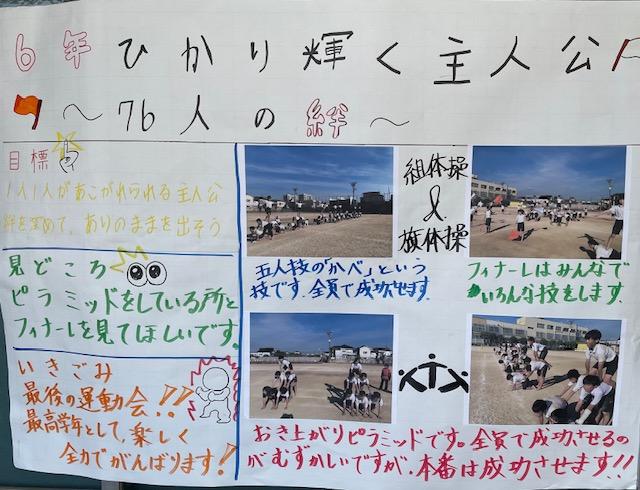 6年ひかり輝く主人公
～76人の絆～
目標
1人1人があこがれられる主人公
絆を深めて、ありのままを出そう
見どころ
ピラミッドをしている所と
フィナーレを見てほしいです。
いきごみ
最後の運動会!!
最高学年として、楽しく
全力でがんばります!
五人技の「かべ」という
技です。全員で成功させます。
組体操
&
旗体操
フィナーレはみんなで
いろんな技をします。
おき上がりピラミッドです。全員で成功させるの
がむずかしいですが、本番は成功させます!!